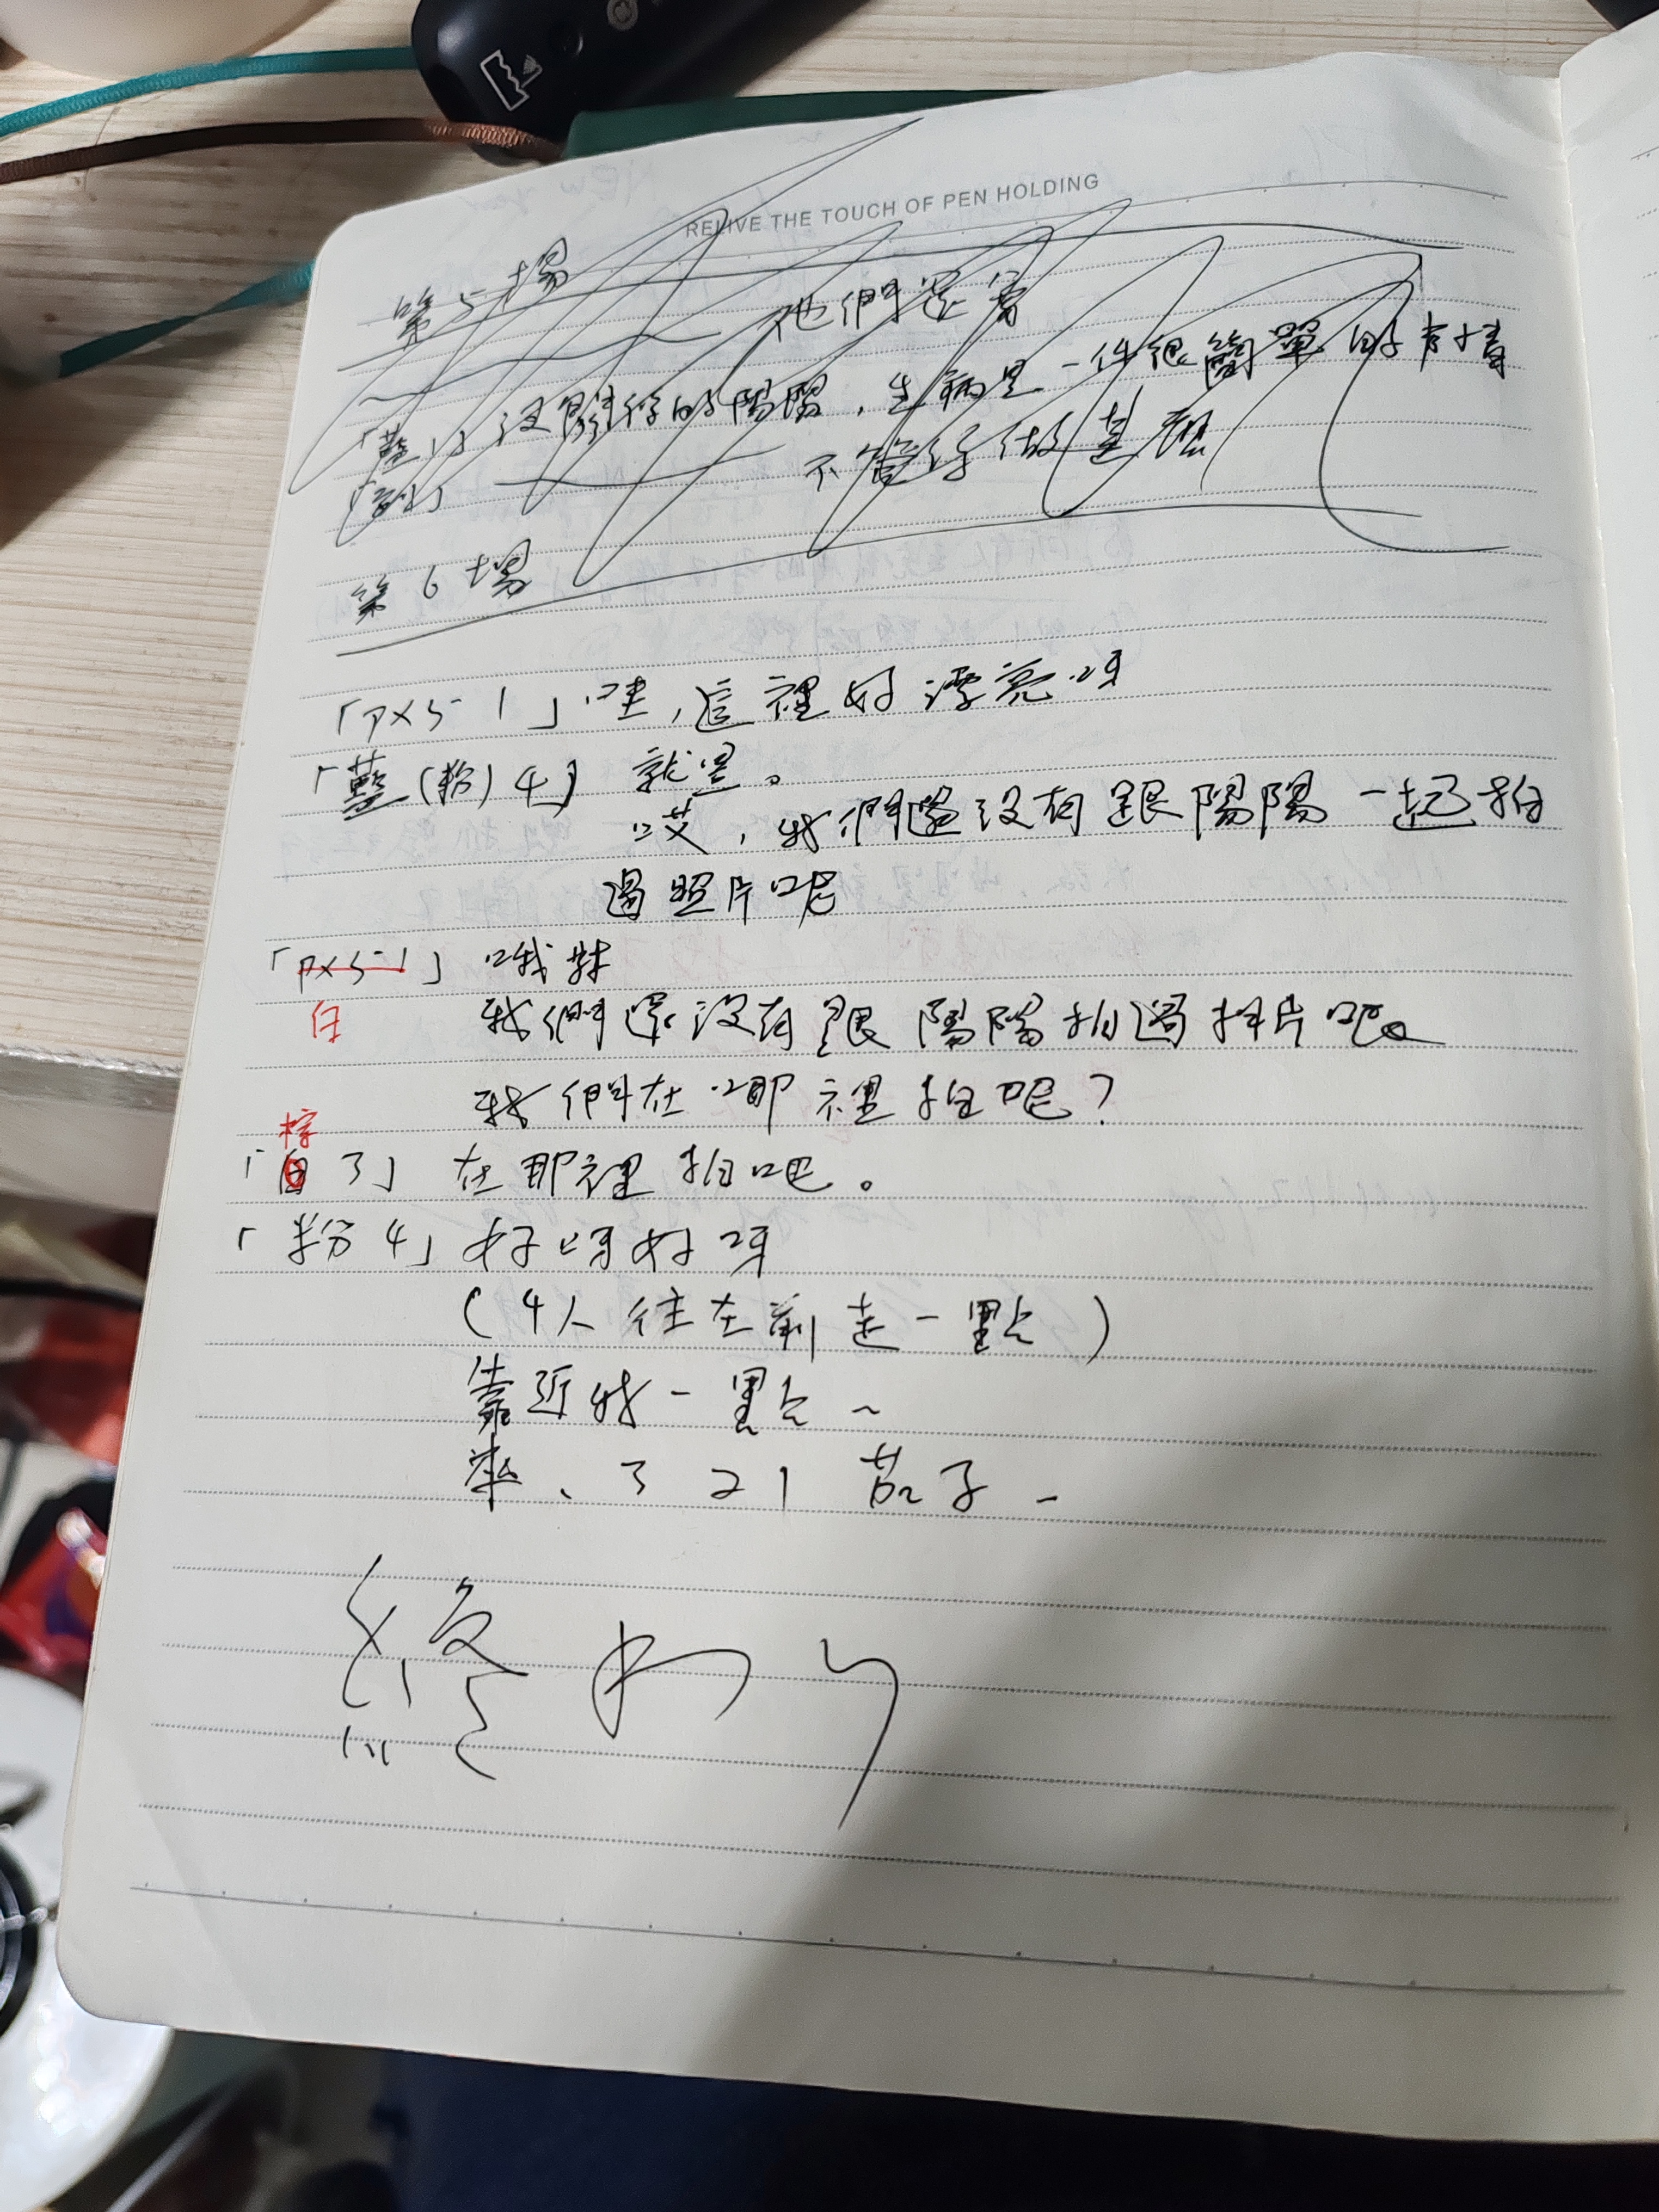 RELIVE THE TOUCH OF PEN HOLDING
第5場
他們還
「藍1」沒關係的陽陽,生病是一件很簡單的事情
不管你做
第6場
「PX5-1」哇,這裡好漂亮呀
「藍(粉)4」就是。
哎,我們還沒有跟陽陽一起拍
過照片呢
「PX5-1」哦對
白
我們還沒有跟陽陽拍過照片呢
我們在哪裡拍呢?
棕
「白3」在那裡拍吧。
「粉4」好呀好呀
(4人往左前走一點)
靠近我一點~
來、3 2 1 茄子-
終